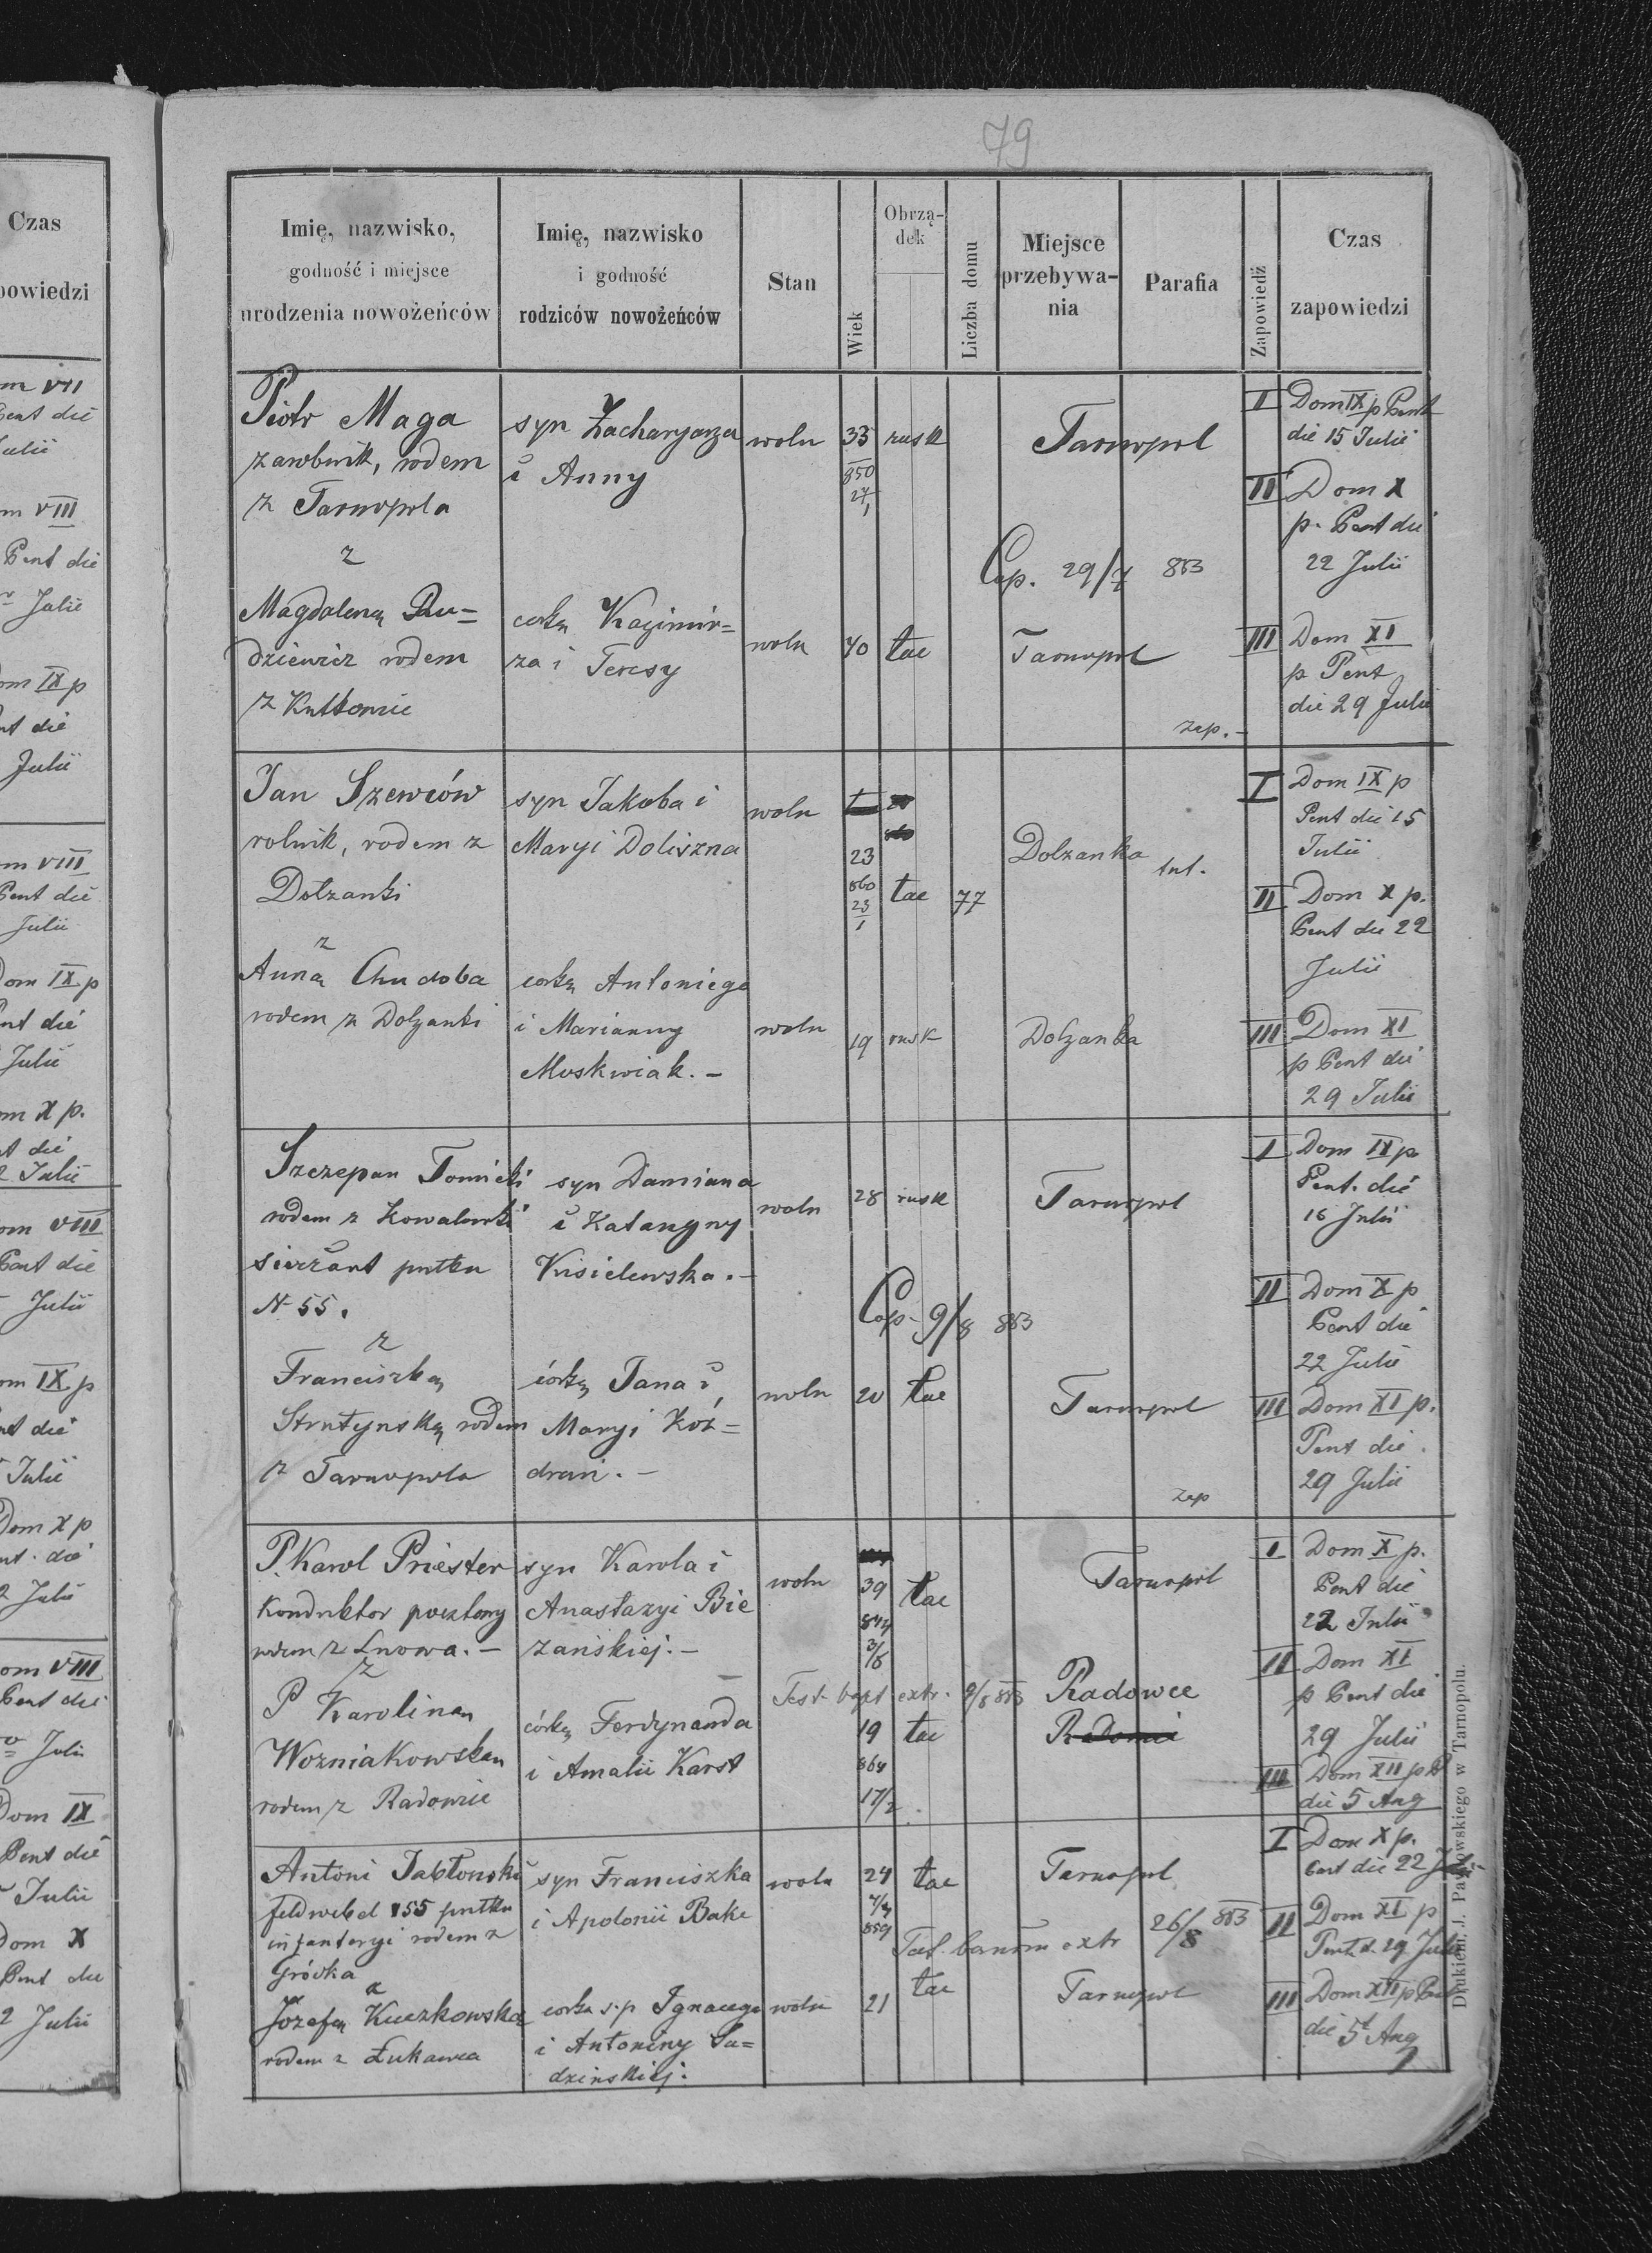 79
Czas
powiedzi
Imię, nazwisko,
godność i miejsce
urodzenia nowożeńców
Imię, nazwisko
i godność
rodziców nowożeńców
Stan
Wiek
Obrzą-
dek
Liczba domu
Miejsce
przebywa-
nia
Parafia
Zapowiedź
Czas
zapowiedzi
Piotr Maga
zarobnik, rodem
z Tarnopola
z
Magdaleną Ru=
dziewicz rodem
z Kutkowic
syn Zacharyasza
i Anny
corką Kazimir=
za i Teresy
woln
33
850
27/1
rusk
Tarnopol
Cop. 29/7 883
woln
40
łac
Tarnopol
zep. -
I Dom IX p Pent
die 15 Julii
II Dom X
p. Pent die
22 Julii
III Dom XI
p Pent
die 29 Julii
Jan Szewców
rolnik, rodem z
Dołzanki
z
Anną Chudoba
rodem z Dolzanki
syn Jakoba i
Maryi Doliszna
corką Antoniego
i Marianny
Moskwiak. -
woln
23
860
23
1
łac
77
Dolzanka
tut.
woln
19
rusk
Dolzanka
I Dom IX p
Pent die 15
Julii
II Dom X p.
Pent die 22
Julii
III Dom XI
p Pent die
29 Julii
Szczepan Tomicki
rodem z Kowalowki
sierżant pułku
N 55.
z
Franciszką
Strutynską rodem
z Tarnopola
syn Damiana
i Katarzyny
Kisielewska. -
córką Jana i
Maryi Koź=
drań. -
woln
28
rusk
Tarnopol
Cop - 9/8 883
woln
20
łac
Tarnopol
zep
I Dom IX p
Pent. die
15 Julii
II Dom X p
Pent die
22 Julii
III Dom XI p.
Pent die
29 Julii
P. Karol Priester
Konduktor pocztowy
rodem z Lwowa. -
z
P Karoliną
Wozniakowską
rodem z Radowic
syn Karola i
Anastazyi Bie
zańskiej. -
córką Ferdynanda
i Amalii Karst
woln
39
844
3/6
łac
Tarnopol
Test. bapt extr. 9/8 883
19
864
17/2
łac
Radowce
Radowic
I Dom X p.
Pent die
22 Julii
II Dom XI
p Pent die
29 Julii
III Dom XII p P
die 5 Aug
Antoni Jabłonski
feldwebel 55 pułku
infanteryi rodem z
Gródka
z
Józefą Kuczkowska
rodem z Łukawca
syn Franciszka
i Apolonii Bake
corka s.p Ignacego
i Antoniny Sa=
dzinskiej.
woln
24
7/4
859
łac
Tarnopol
Test. bannm extr 26/8 883
woln
21
łac
Tarnopol
I Dom X p.
Pent die 22 Julii
II Dom XI p
Pent d. 29 Julii
III Dom XII p Pent
die 5t Aug
Drukiem J. Pawłowskiego w Tarnopolu.